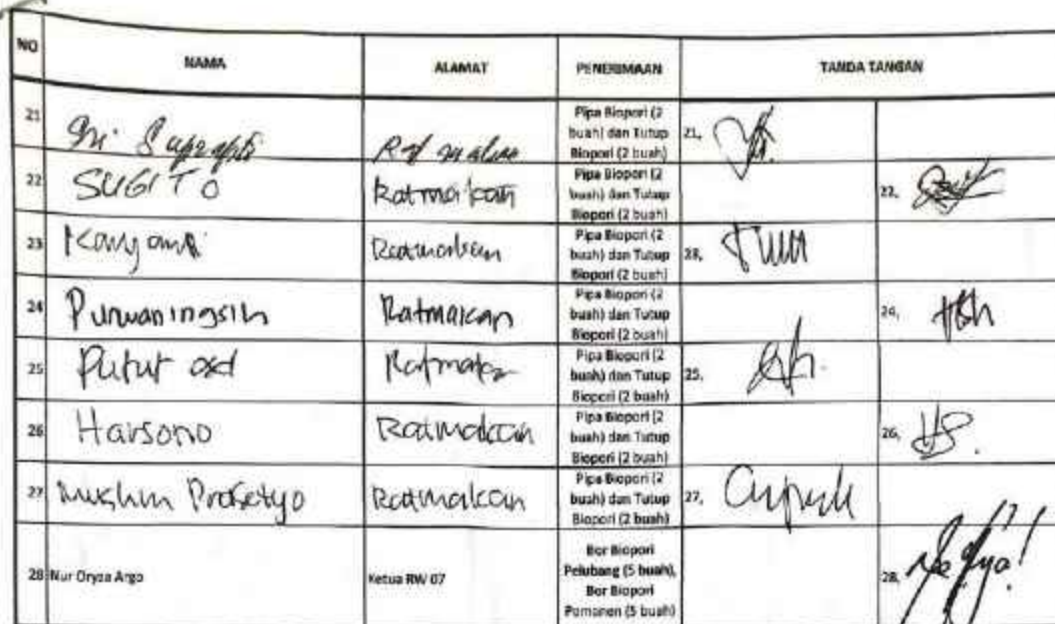 NO NAMA ALAMAT PENERIMAAN TANDA TANGAN
21 Sri Suprapti Pipa Biopori (2
buah) dan Tutup 21,
Biopori (2 buah)
22 SUGITO Ratmakan Pipa Biopori (2
buah) dan Tutup 22,
Biopori (2 buah)
23 Ratmakan Pipa Biopori (2
buah) dan Tutup 23,
Biopori (2 buah)
24 Purwaningsih Ratmakan Pipa Biopori (2
buah) dan Tutup 24,
Biopori (2 buah)
25 Putut Pipa Biopori (2
buah) dan Tutup 25,
Biopori (2 buah)
26 Harsono Ratmakan Pipa Biopori (2
buah) dan Tutup 26,
Biopori (2 buah)
27 Prasetyo Ratmakan Pipa Biopori (2
buah) dan Tutup 27,
Biopori (2 buah)
28 Nur Oryza Argo Ketua RW 07 Bor Biopori
Pelubang (5 buah),
Bor Biopori 28,
Pemanen (5 buah)